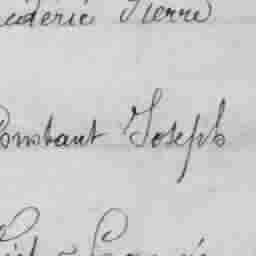 Frédéric Pierre
Constant Joseph